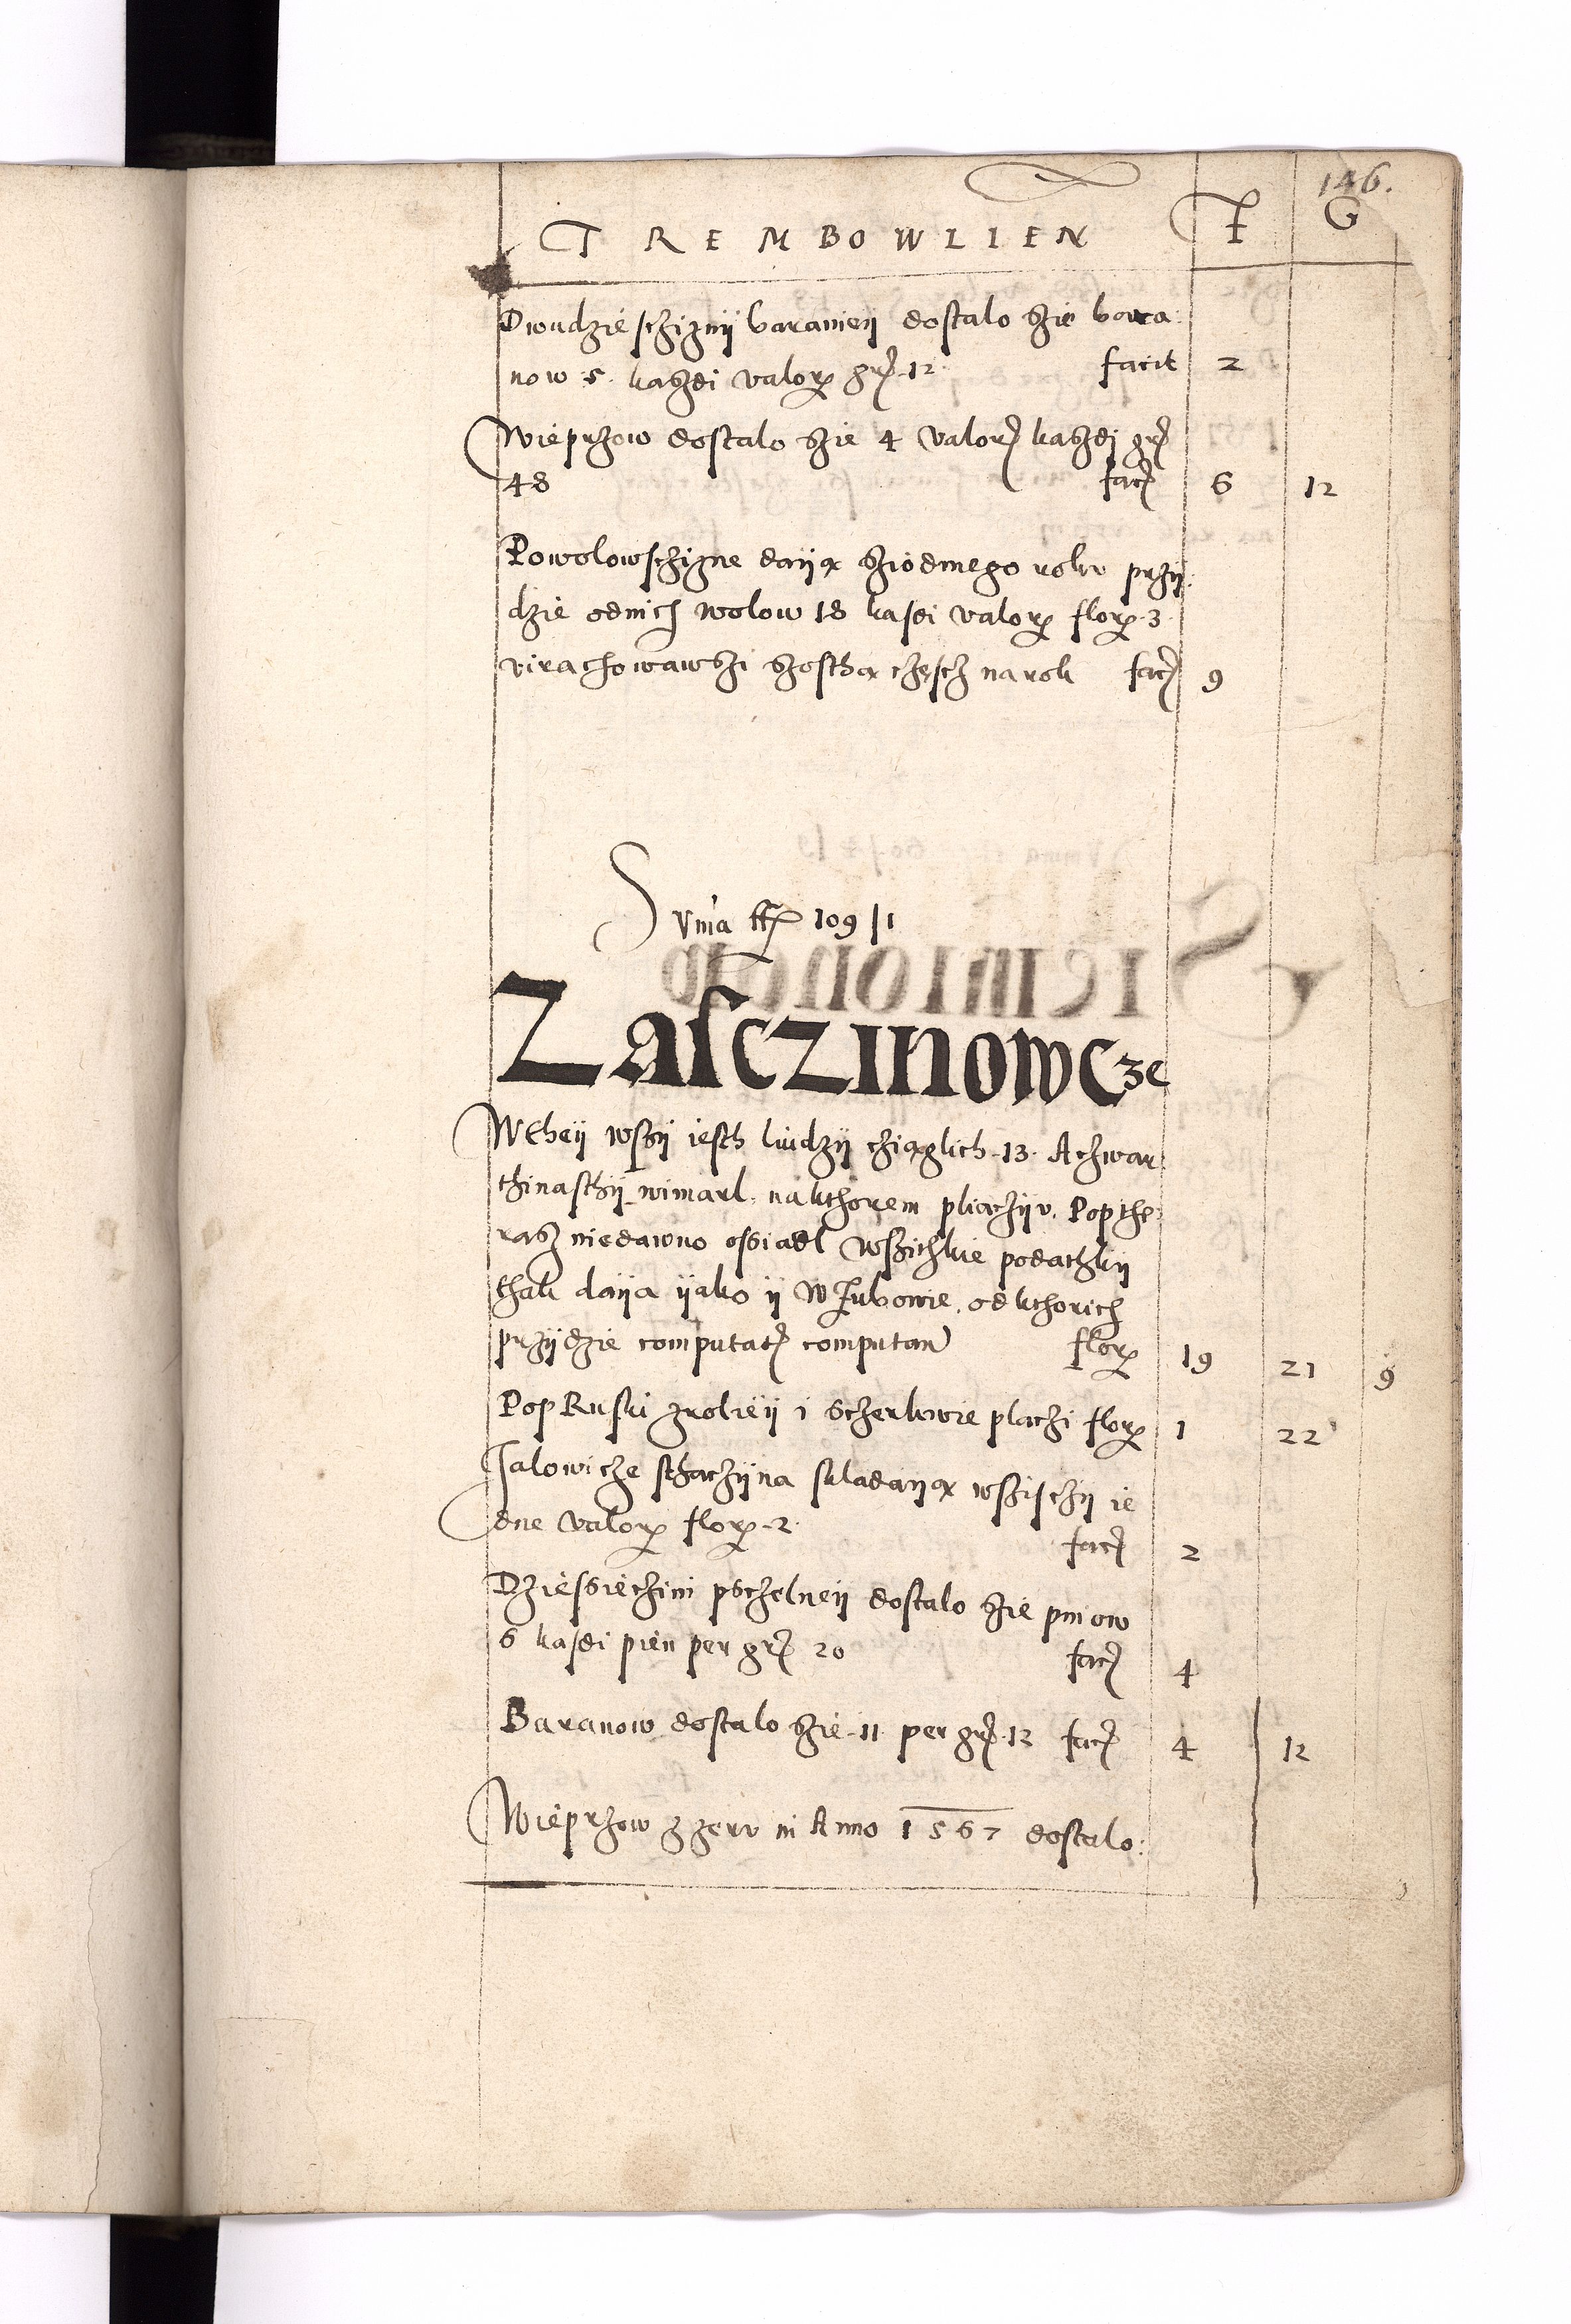 146.
TREMBOWLIEN F G
Dwudzieschizny baraniey dostalo szie bara:
now 5. kaszdi valor gr 12 facit 2
Wieprzow dostalo szie 4 valor kaszdi gr
48 fac 6 12
Powolowschizne dayą sziodmego roku przy:
dzie odnich wolow 18 kasdi valor flor 3
virachowawszi szosthą chęsch narok fac 9
Suma ff 109 / 1
Zasczinowcze
Wthey wszy iesth liudzy chiąglich 13. A chwar
thinasthy wimarl. nakthorem pliaczy v. Pop the
rasz niedawno ossiadl Wszithkie podathky
thak daya yako y W Zubowie. od kthorich
przydzie computat computan flor 19 21 9
Pop Ruski zroliey i Scherkwie plachi flor 1 22
Jalowicze sthaczyna skladayą wszischy ie
dne valor flor 2. fac 2
Dziessiechini pscholney dostalo szie pniow
6 kasdi pien per gr 20 fac 4
Baranow dostalo szie 11 per gr 12 fac 4 12
Wieprzow z zeru in Anno 1567 dostalo: